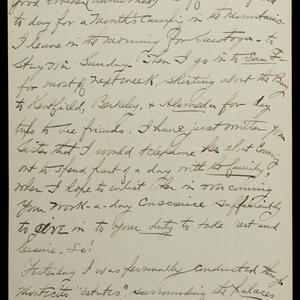 to day for a Month's Camping in the Mountains.
I leave in the morning for Saratoga - to
stay over Sunday. Then I go in to San F-
for most of next week, skirting about the Bay
to Northfield, Berkeley, & Alameda for day
trips to see friends. I have just written your
Sister that I would telephone her about Coming
out to spend part of a day with the family,
when I hope to assist her in overcoming
your work-a-day Conscience sufficiently
to give in to your duty to take rest and
leisure. So!
Yesterday I was personally conducted through
Montecito "estates", surrounding the Palaces